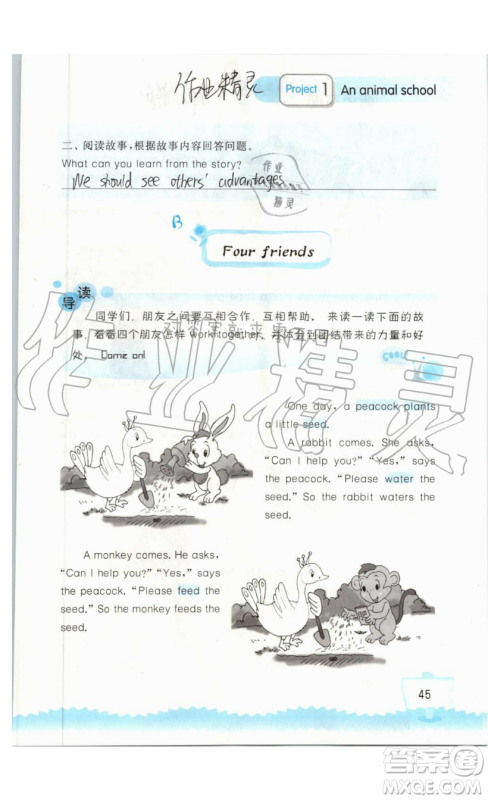 作业精灵
Project 1 An animal school
二、阅读故事,根据故事内容回答问题。
What can you learn from the story?
We should see others' advantages.
作业
精灵
B
Four friends
导读
同学们,朋友之间要互相合作,互相帮助,来读一读下面的故
事,看看四个朋友怎样 work together,并体会到团结带来的力量和好
处。Come on!
作业精灵
One day, a peacock plants
a little seed.
A rabbit comes. He asks,
“Can I help you?” “Yes,” says
the peacock. “Please water the
seed.” So the rabbit waters the
seed.
A monkey comes. He asks,
“Can I help you?” “Yes,” says
the peacock. “Please feed the
seed.” So the monkey feeds the
seed.
45
答案圈
MXQE.COM